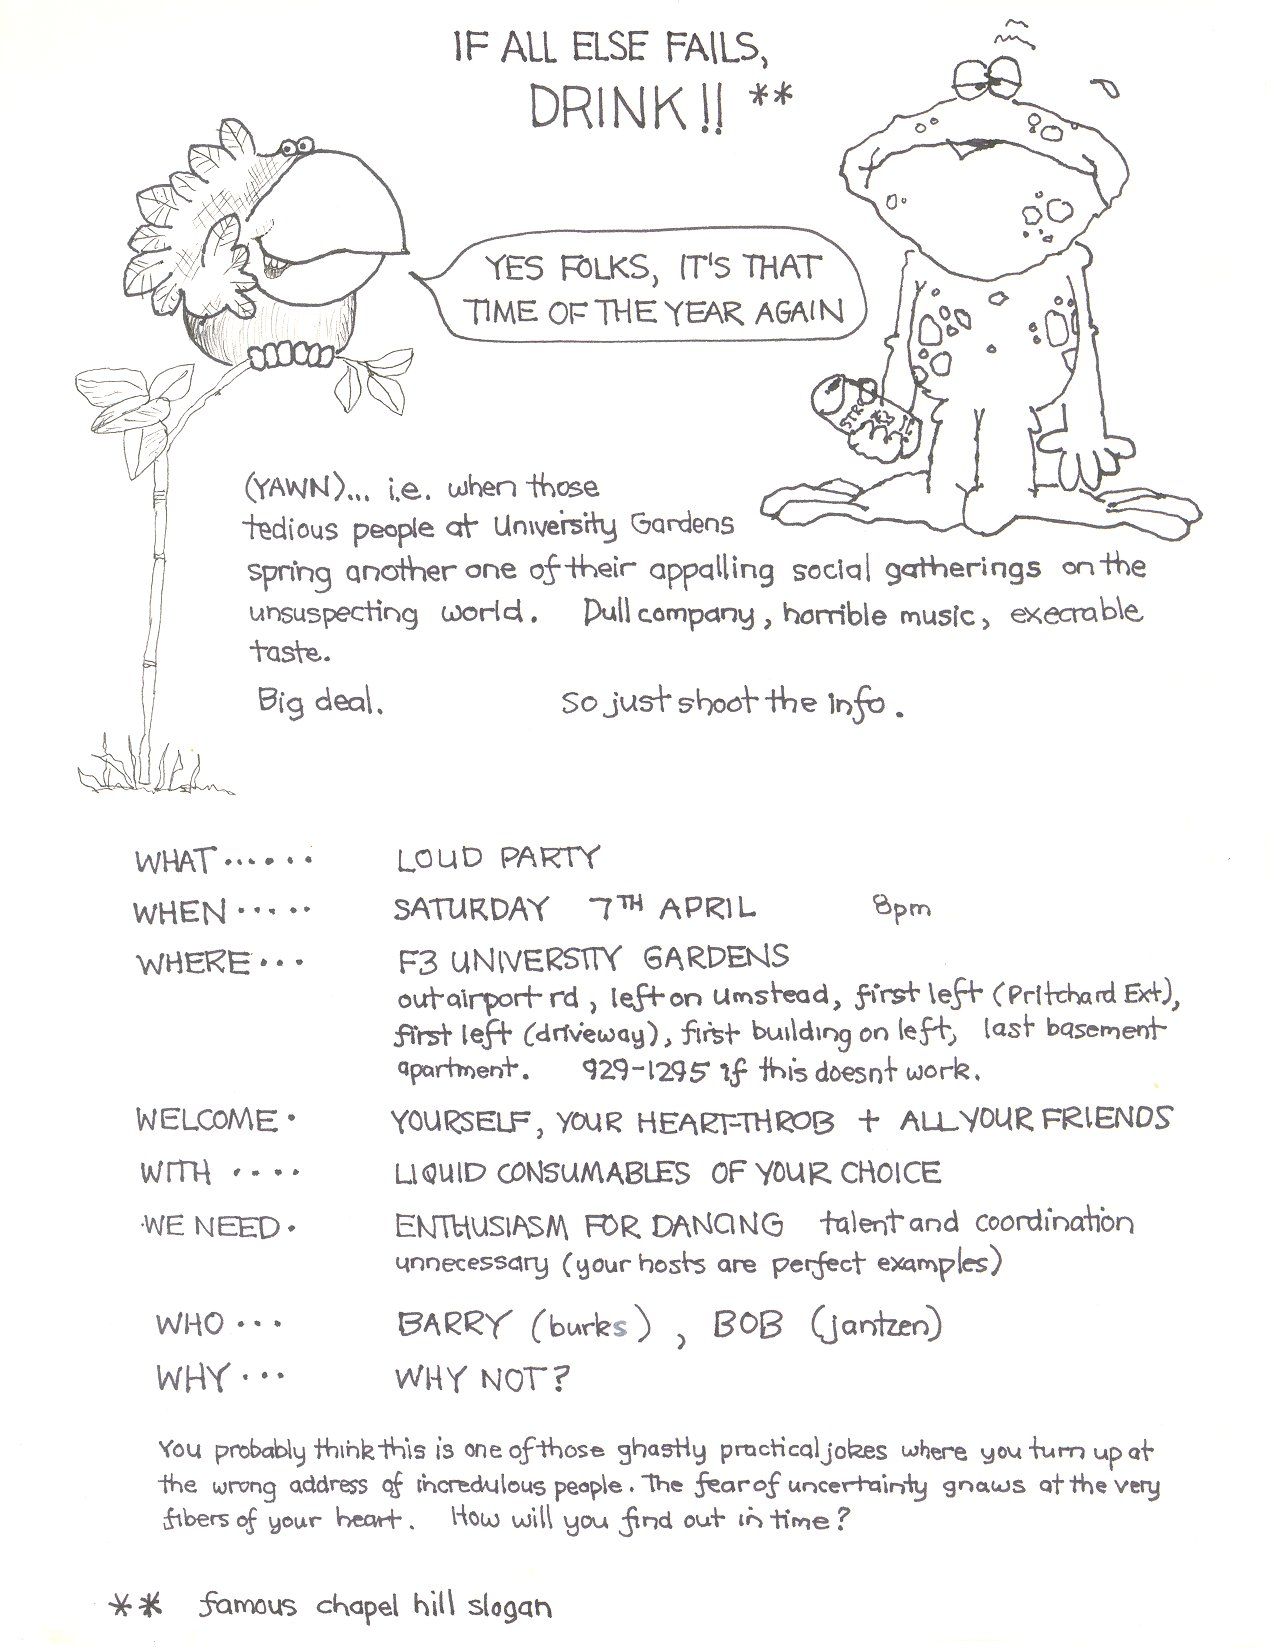 IF ALL ELSE FAILS,
DRINK!! **
YES FOLKS, IT'S THAT
TIME OF THE YEAR AGAIN
(YAWN)... i.e. when those
tedious people at University Gardens
spring another one of their appalling social gatherings on the
unsuspecting world. Dull company, horrible music, execrable
taste.
Big deal. So just shoot the info.
WHAT...... LOUD PARTY
WHEN..... SATURDAY 7TH APRIL 8pm
WHERE... F3 UNIVERSITY GARDENS
out airport rd, left on Umstead, first left (Pritchard Ext),
first left (driveway), first building on left, last basement
apartment. 929-1295 if this doesnt work.
WELCOME. YOURSELF, YOUR HEART-THROB + ALL YOUR FRIENDS
WITH .... LIQUID CONSUMABLES OF YOUR CHOICE
WE NEED. ENTHUSIASM FOR DANCING talent and coordination
unnecessary (your hosts are perfect examples)
WHO... BARRY (burks), BOB (jantzen)
WHY... WHY NOT?
You probably think this is one of those ghastly practical jokes where you turn up at
the wrong address of incredulous people. The fear of uncertainty gnaws at the very
fibers of your heart. How will you find out in time?
** famous chapel hill slogan